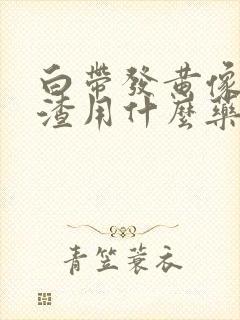 白帶發黄像
渣用什麼藥
青笠蓑衣